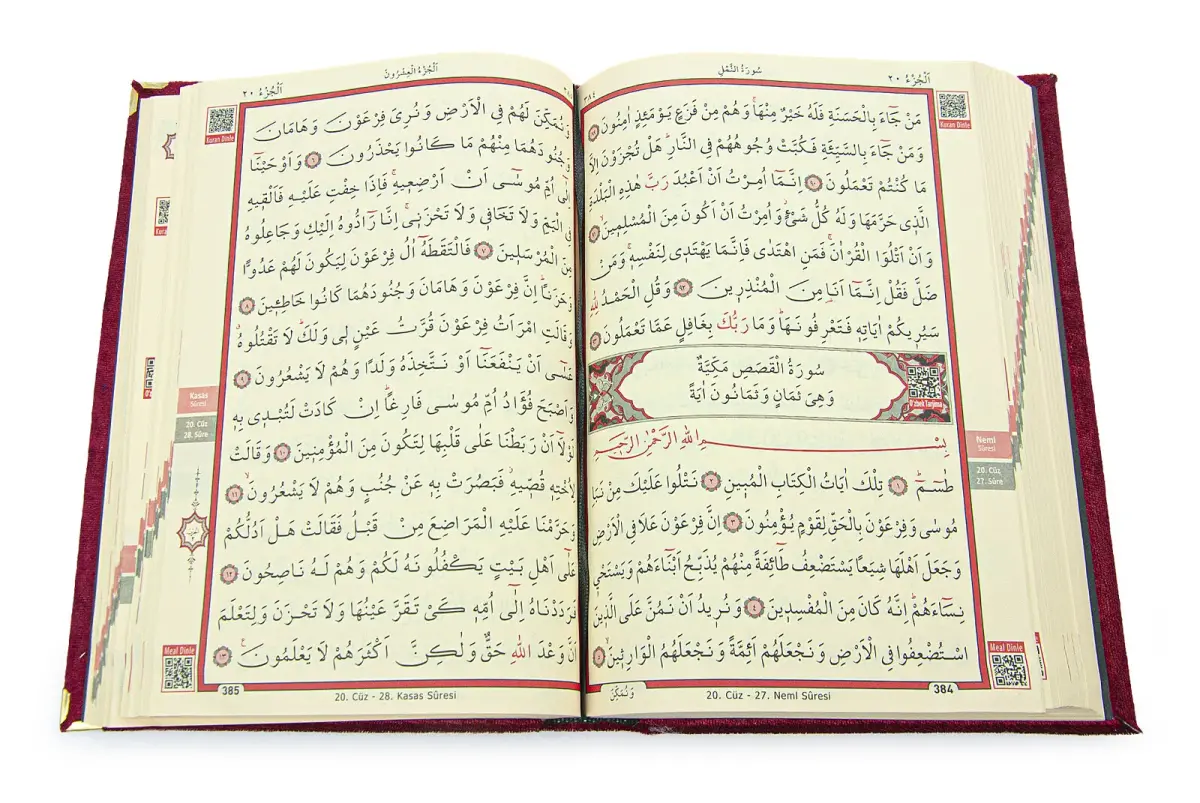 سُورَةُ النَّمْلِ
اَلْجُزْءُ ٢٠
٣٨٤
Kuran Dinle
مَنْ جَٓاءَ بِالْحَسَنَةِ فَلَهُ خَيْرٌ مِنْهَاۚ وَهُمْ مِنْ فَزَعٍ يَوْمَئِذٍ اٰمِنُونَ
وَمَنْ جَٓاءَ بِالسَّيِّئَةِ فَكُبَّتْ وُجُوهُهُمْ فِي النَّارِۜ هَلْ تُجْزَوْنَ اِلَّا
مَا كُنْتُمْ تَعْمَلُونَ ٩٠ اِنَّمَٓا اُمِرْتُ اَنْ اَعْبُدَ رَبَّ هٰذِهِ الْبَلْدَةِ
الَّذ۪ي حَرَّمَهَا وَلَهُ كُلُّ شَيْءٍۘ وَاُمِرْتُ اَنْ اَكُونَ مِنَ الْمُسْلِم۪ينَۙ
وَاَنْ اَتْلُوَا الْقُرْاٰنَۚ فَمَنِ اهْتَدٰى فَاِنَّمَا يَهْتَد۪ي لِنَفْسِه۪ۚ وَمَنْ
ضَلَّ فَقُلْ اِنَّمَٓا اَنَا۬ مِنَ الْمُنْذِر۪ينَ ٩٢ وَقُلِ الْحَمْدُ لِلّٰهِ
سَيُر۪يكُمْ اٰيَاتِه۪ فَتَعْرِفُونَهَاۜ وَمَا رَبُّكَ بِغَافِلٍ عَمَّا تَعْمَلُونَ
سُورَةُ الْقَصَصِ مَكِّيَّةٌ
وَهِيَ ثَمَانٍ وَثَمَانُونَ اٰيَةً
Özbek Tercüme
بِسْمِ اللّٰهِ الرَّحْمٰنِ الرَّح۪يمِ
طٰسٓمٓ ١ تِلْكَ اٰيَاتُ الْكِتَابِ الْمُب۪ينِ ٢ نَتْلُوا عَلَيْكَ مِنْ نَبَأِ
مُوسٰى وَفِرْعَوْنَ بِالْحَقِّ لِقَوْمٍ يُؤْمِنُونَ ٣ اِنَّ فِرْعَوْنَ عَلَا فِي الْاَرْضِ
وَجَعَلَ اَهْلَهَا شِيَعًا يَسْتَضْعِفُ طَٓائِفَةً مِنْهُمْ يُذَبِّحُ اَبْنَٓاءَهُمْ وَيَسْتَحْي۪
نِسَٓاءَهُمْۜ اِنَّهُ كَانَ مِنَ الْمُفْسِد۪ينَ ٤ وَنُر۪يدُ اَنْ نَمُنَّ عَلَى الَّذ۪ينَ
اسْتُضْعِفُوا فِي الْاَرْضِ وَنَجْعَلَهُمْ اَئِمَّةً وَنَجْعَلَهُمُ الْوَارِث۪ينَۙ
وَنُمَكِّنَ
20. Cüz - 27. Neml Sûresi
384
Neml
Sûresi
20. Cüz
27. Sûre
Meal Dinle
اَلْجُزْءُ الْعِشْرُونَ
اَلْجُزْءُ ٢٠
Kuran Dinle
وَنُمَكِّنَ لَهُمْ فِي الْاَرْضِ وَنُرِيَ فِرْعَوْنَ وَهَامَانَ
وَجُنُودَهُمَا مِنْهُمْ مَا كَانُوا يَحْذَرُونَ ٦ وَاَوْحَيْنَٓا
اِلٰٓى اُمِّ مُوسٰٓى اَنْ اَرْضِع۪يهِۚ فَاِذَا خِفْتِ عَلَيْهِ فَاَلْق۪يهِ
فِي الْيَمِّ وَلَا تَخَاف۪ي وَلَا تَحْزَن۪يۚ اِنَّا رَٓادُّوهُ اِلَيْكِ وَجَاعِلُوهُ
مِنَ الْمُرْسَل۪ينَ ٧ فَالْتَقَطَهُٓ اٰلُ فِرْعَوْنَ لِيَكُونَ لَهُمْ عَدُوًّا
وَحَزَنًاۜ اِنَّ فِرْعَوْنَ وَهَامَانَ وَجُنُودَهُمَا كَانُوا خَاطِـ۪ٔينَ ٨
وَقَالَتِ امْرَاَتُ فِرْعَوْنَ قُرَّتُ عَيْنٍ ل۪ي وَلَكَۜ لَا تَقْتُلُوهُۗ
عَسٰٓى اَنْ يَنْفَعَنَٓا اَوْ نَتَّخِذَهُ وَلَدًا وَهُمْ لَا يَشْعُرُونَ ٩
وَاَصْبَحَ فُؤٰادُ اُمِّ مُوسٰى فَارِغًاۜ اِنْ كَادَتْ لَتُبْد۪ي بِه۪
لَوْلَٓا اَنْ رَبَطْنَا عَلٰى قَلْبِهَا لِتَكُونَ مِنَ الْمُؤْمِن۪ينَ ١٠ وَقَالَتْ
لِاُخْتِه۪ قُصّ۪يهِۘ فَبَصُرَتْ بِه۪ عَنْ جُنُبٍ وَهُمْ لَا يَشْعُرُونَۙ ١١
وَحَرَّمْنَا عَلَيْهِ الْمَرَاضِعَ مِنْ قَبْلُ فَقَالَتْ هَلْ اَدُلُّكُمْ
عَلٰٓى اَهْلِ بَيْتٍ يَكْفُلُونَهُ لَكُمْ وَهُمْ لَهُ نَاصِحُونَ ١٢
فَرَدَدْنَاهُ اِلٰٓى اُمِّه۪ كَيْ تَقَرَّ عَيْنُهَا وَلَا تَحْزَنَ وَلِتَعْلَمَ
اَنَّ وَعْدَ اللّٰهِ حَقٌّ وَلٰكِنَّ اَكْثَرَهُمْ لَا يَعْلَمُونَ۟ ١٣
385
20. Cüz - 28. Kasas Sûresi
Kasas
Sûresi
20. Cüz
28. Sûre
Meal Dinle